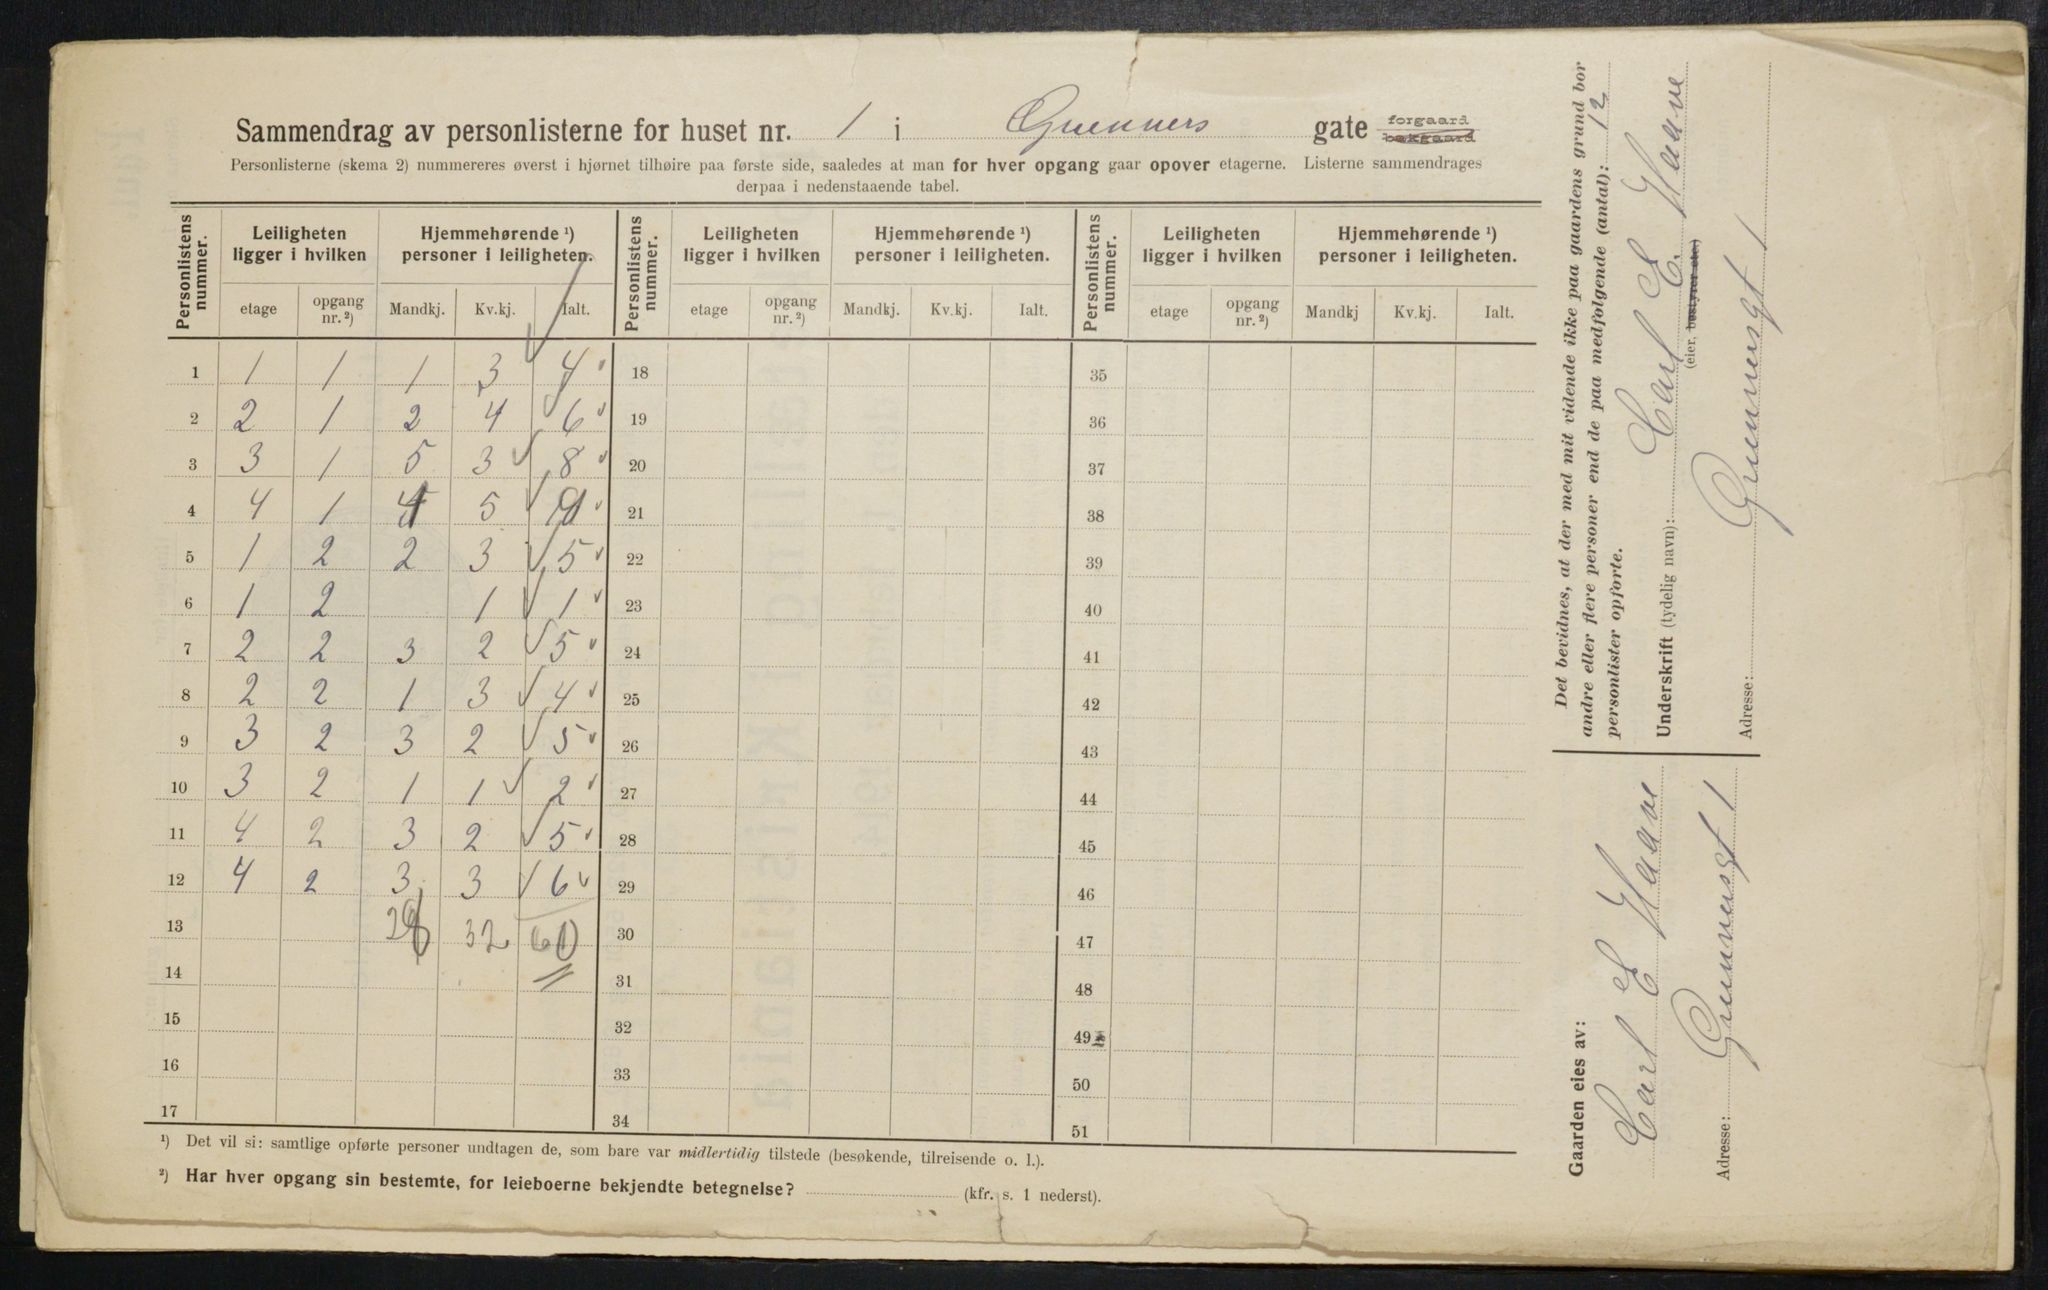 Sammendrag av personlisterne for huset nr. 1 i Gruenners gate forgaard bakgaard
Personlisterne (skema 2) nummereres øverst i hjørnet tilhøire paa første side, saaledes at man for hver opgang gaar opover etagerne. Listerne sammendrages
derpaa i nedenstaaende tabel.
Personlistens nummer. Leiligheten ligger i hvilken Hjemmehørende ¹) personer i leiligheten. Personlistens nummer. Leiligheten ligger i hvilken Hjemmehørende ¹) personer i leiligheten. Personlistens nummer. Leiligheten ligger i hvilken Hjemmehørende ¹) personer i leiligheten.
etage opgang nr. ²) Mandkj. Kv.kj. Ialt. etage opgang nr. ²) Mandkj. Kv.kj. Ialt. etage opgang nr. ²) Mandkj Kv.kj. Ialt.
1 1 1 1 3 4 18 35
2 2 1 2 4 6 19 36
3 3 1 5 3 8 20 37
4 4 1 5 21 38
5 1 2 2 3 5 22 39
6 1 2 1 1 23 40
7 2 2 3 2 5 24 41
8 2 2 1 3 4 25 42
9 3 2 3 2 5 26 43
10 3 2 1 1 2 27 44
11 4 2 3 2 5 28 45
12 4 2 3 3 6 29 46
13 32 30 47
14 31 48
15 32 49
16 33 50
17 34 51
¹) Det vil si: samtlige opførte personer undtagen de, som bare var midlertidig tilstede (besøkende, tilreisende o. l.).
²) Har hver opgang sin bestemte, for leieboerne bekjendte betegnelse? (kfr. s. 1 nederst).
Det bevidnes, at der med mit vidende ikke paa gaardens grund bor
andre eller flere personer end de paa medfølgende (antal): 12
personlister opførte.
Underskrift (tydelig navn): Carl E. Haave
(eier, bestyrer etc.)
Adresse: Grunnersgt 1
Gaarden eies av:
Carl E Haave
Adresse: Grunnersgt 1